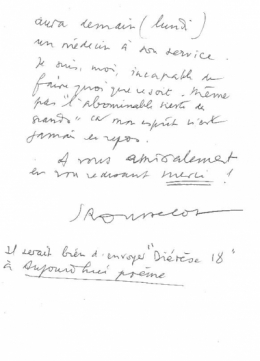 aura demain (lundi)
un médecin à son service.
Je suis, moi, incapable de
faire quoi que ce soit. Même
pas "l'abominable
" car mon esprit n'est
jamais en repos.
A vous amicalement
en vous redisant merci !
J Rousselot
Il serait bien d'envoyer "Diérèse 18"
à Aujourd'hui poème